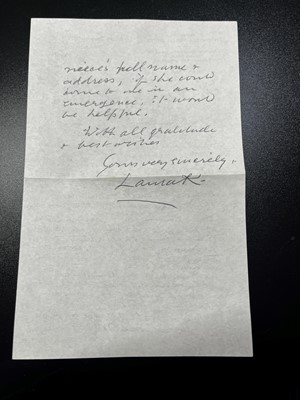 neice's full name &
address, if she could
come to me in an
emergence, it would
be helpful.
With all gratitude
& best wishes
Yours very sincerely,
Laura K.